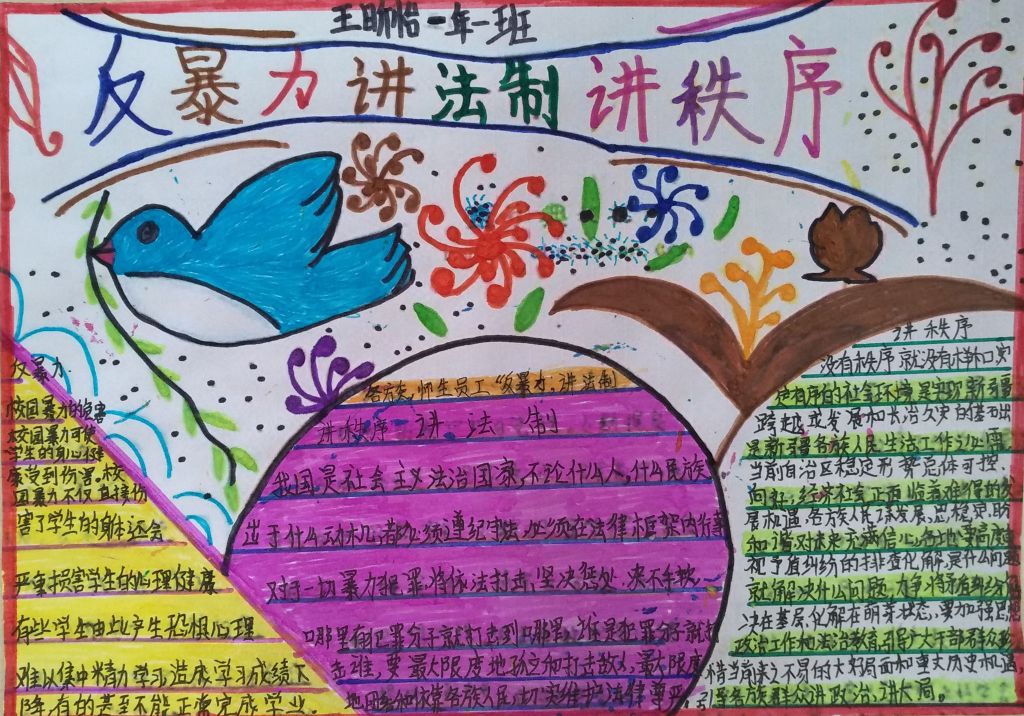 王昕怡一年一班
反暴力讲法制讲秩序
反暴力
校园暴力的危害
校园暴力可使
学生的身心健
康受到伤害,校
园暴力不仅直接伤
害了学生的身体还会
严重损害学生的心理健康
有些学生由此产生恐惧心理
难以集中精力学习造成学习成绩下
降,有的甚至不能正常完成学业.
各族师生员工“反暴力,讲法制
讲秩序
讲法制
我国是社会主义法治国家,不论什么人,什么民族
出于什么动机,都必须遵纪守法,必须在法律框架内行事
对于一切暴力犯罪将依法打击,坚决惩处,决不手软
哪里有犯罪分子就打击到哪里,谁是犯罪分子就打
击谁,要最大限度地孤立和打击敌人,最大限度
地团结和依靠各族人民,切实维护法律尊严
讲秩序
没有秩序就没有
有序的社会环境是实现新疆
跨越式发展和长治久安的基
是新疆各族人民生活工作
当前自治区稳定形势总体可控
向好,经济社会正面临着难得的发
展机遇,各族人民谋发展,思稳定,盼
和谐对未来充满信心
视矛盾纠纷的排查化解,是什么问题
就解决什么问题,力争将矛盾纠纷
决在基层,化解在萌芽状态,要加强思想
政治工作和法治教育,引导广大干部群众
惜当前来之不易的大好局面和重大历史机遇,
引导各族群众讲政治,讲大局。